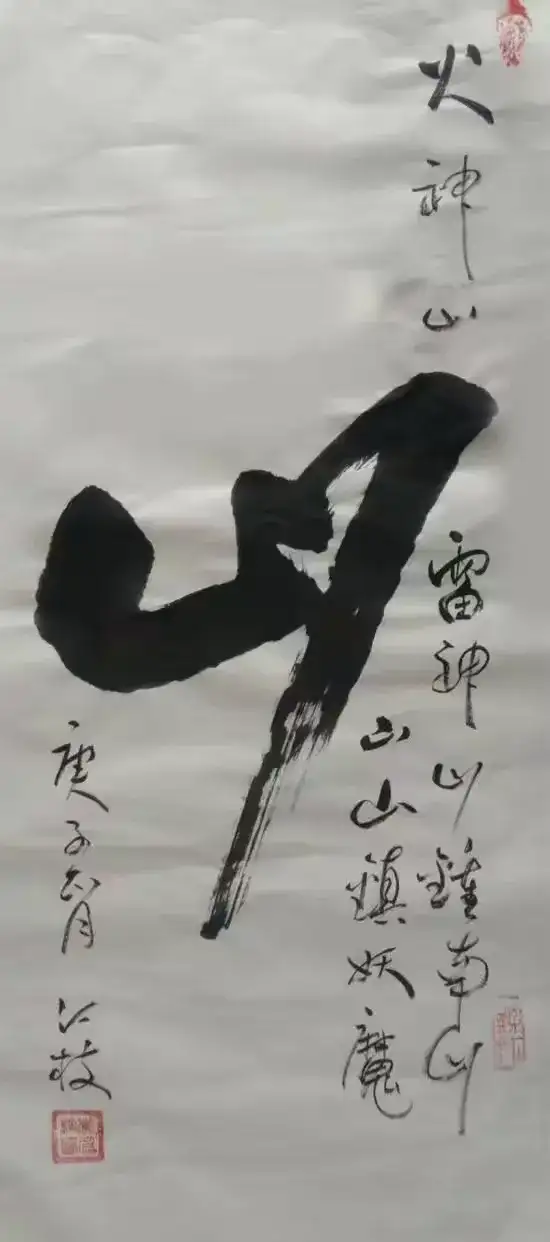 火神山
山
雷神山鐘南山
山山鎮妖魔
庚子正月
江枝